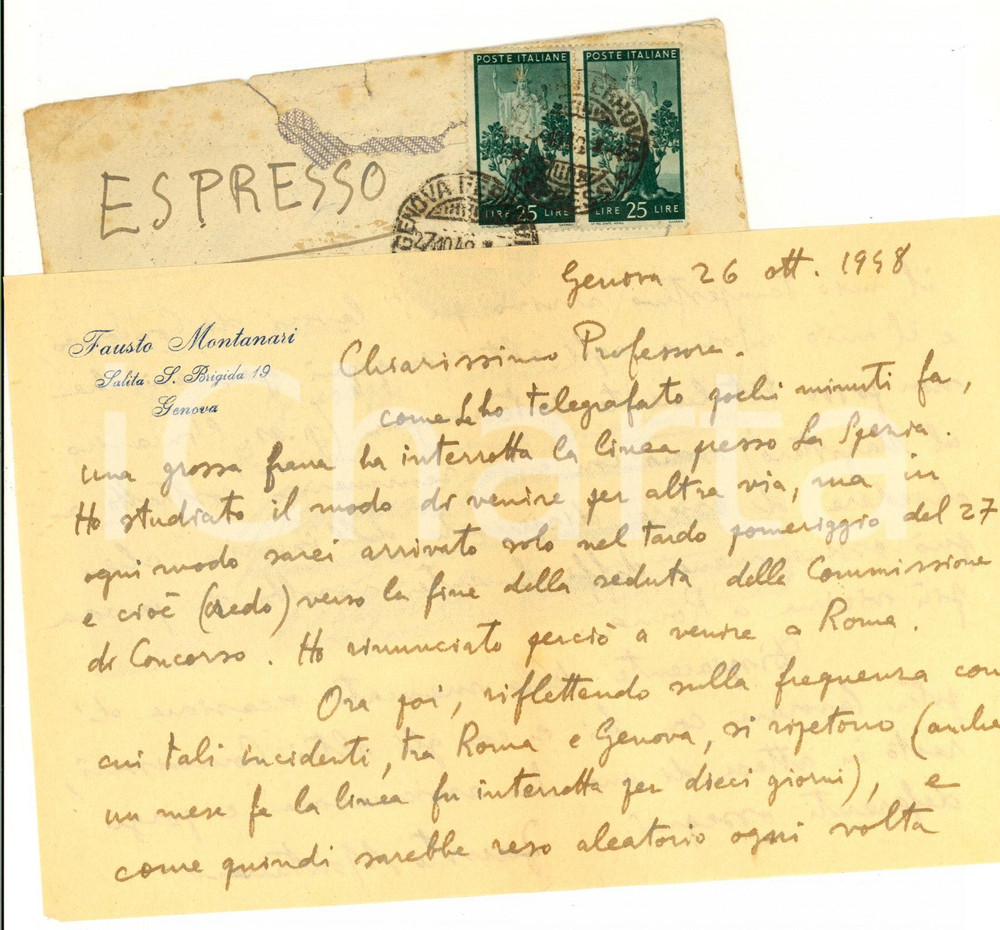 POSTE ITALIANE
POSTE ITALIANE
LIRE 25 LIRE
LIRE 25 LIRE
ESPRESSO
GENOVA FER
27.10.48
Genova 26 ott. 1948
Fausto Montanari
Salita S. Brigida 19
Genova
Chiarissimo Professore.
come Le ho telegrafato pochi minuti fa,
una grossa frana ha interrotta la linea presso La Spezia.
Ho studiato il modo di venire per altra via, ma in
ogni modo sarei arrivato solo nel tardo pomeriggio del 27
e cioè (credo) verso la fine della seduta della Commissione
di Concorso. Ho rinunciato perciò a venire a Roma.
Ora poi, riflettendo sulla frequenza con
cui tali incidenti, tra Roma e Genova, si ripetono (anche
un mese fa la linea fu interrotta per dieci giorni), e
come quindi sarebbe reso aleatorio ogni volta
iCharta